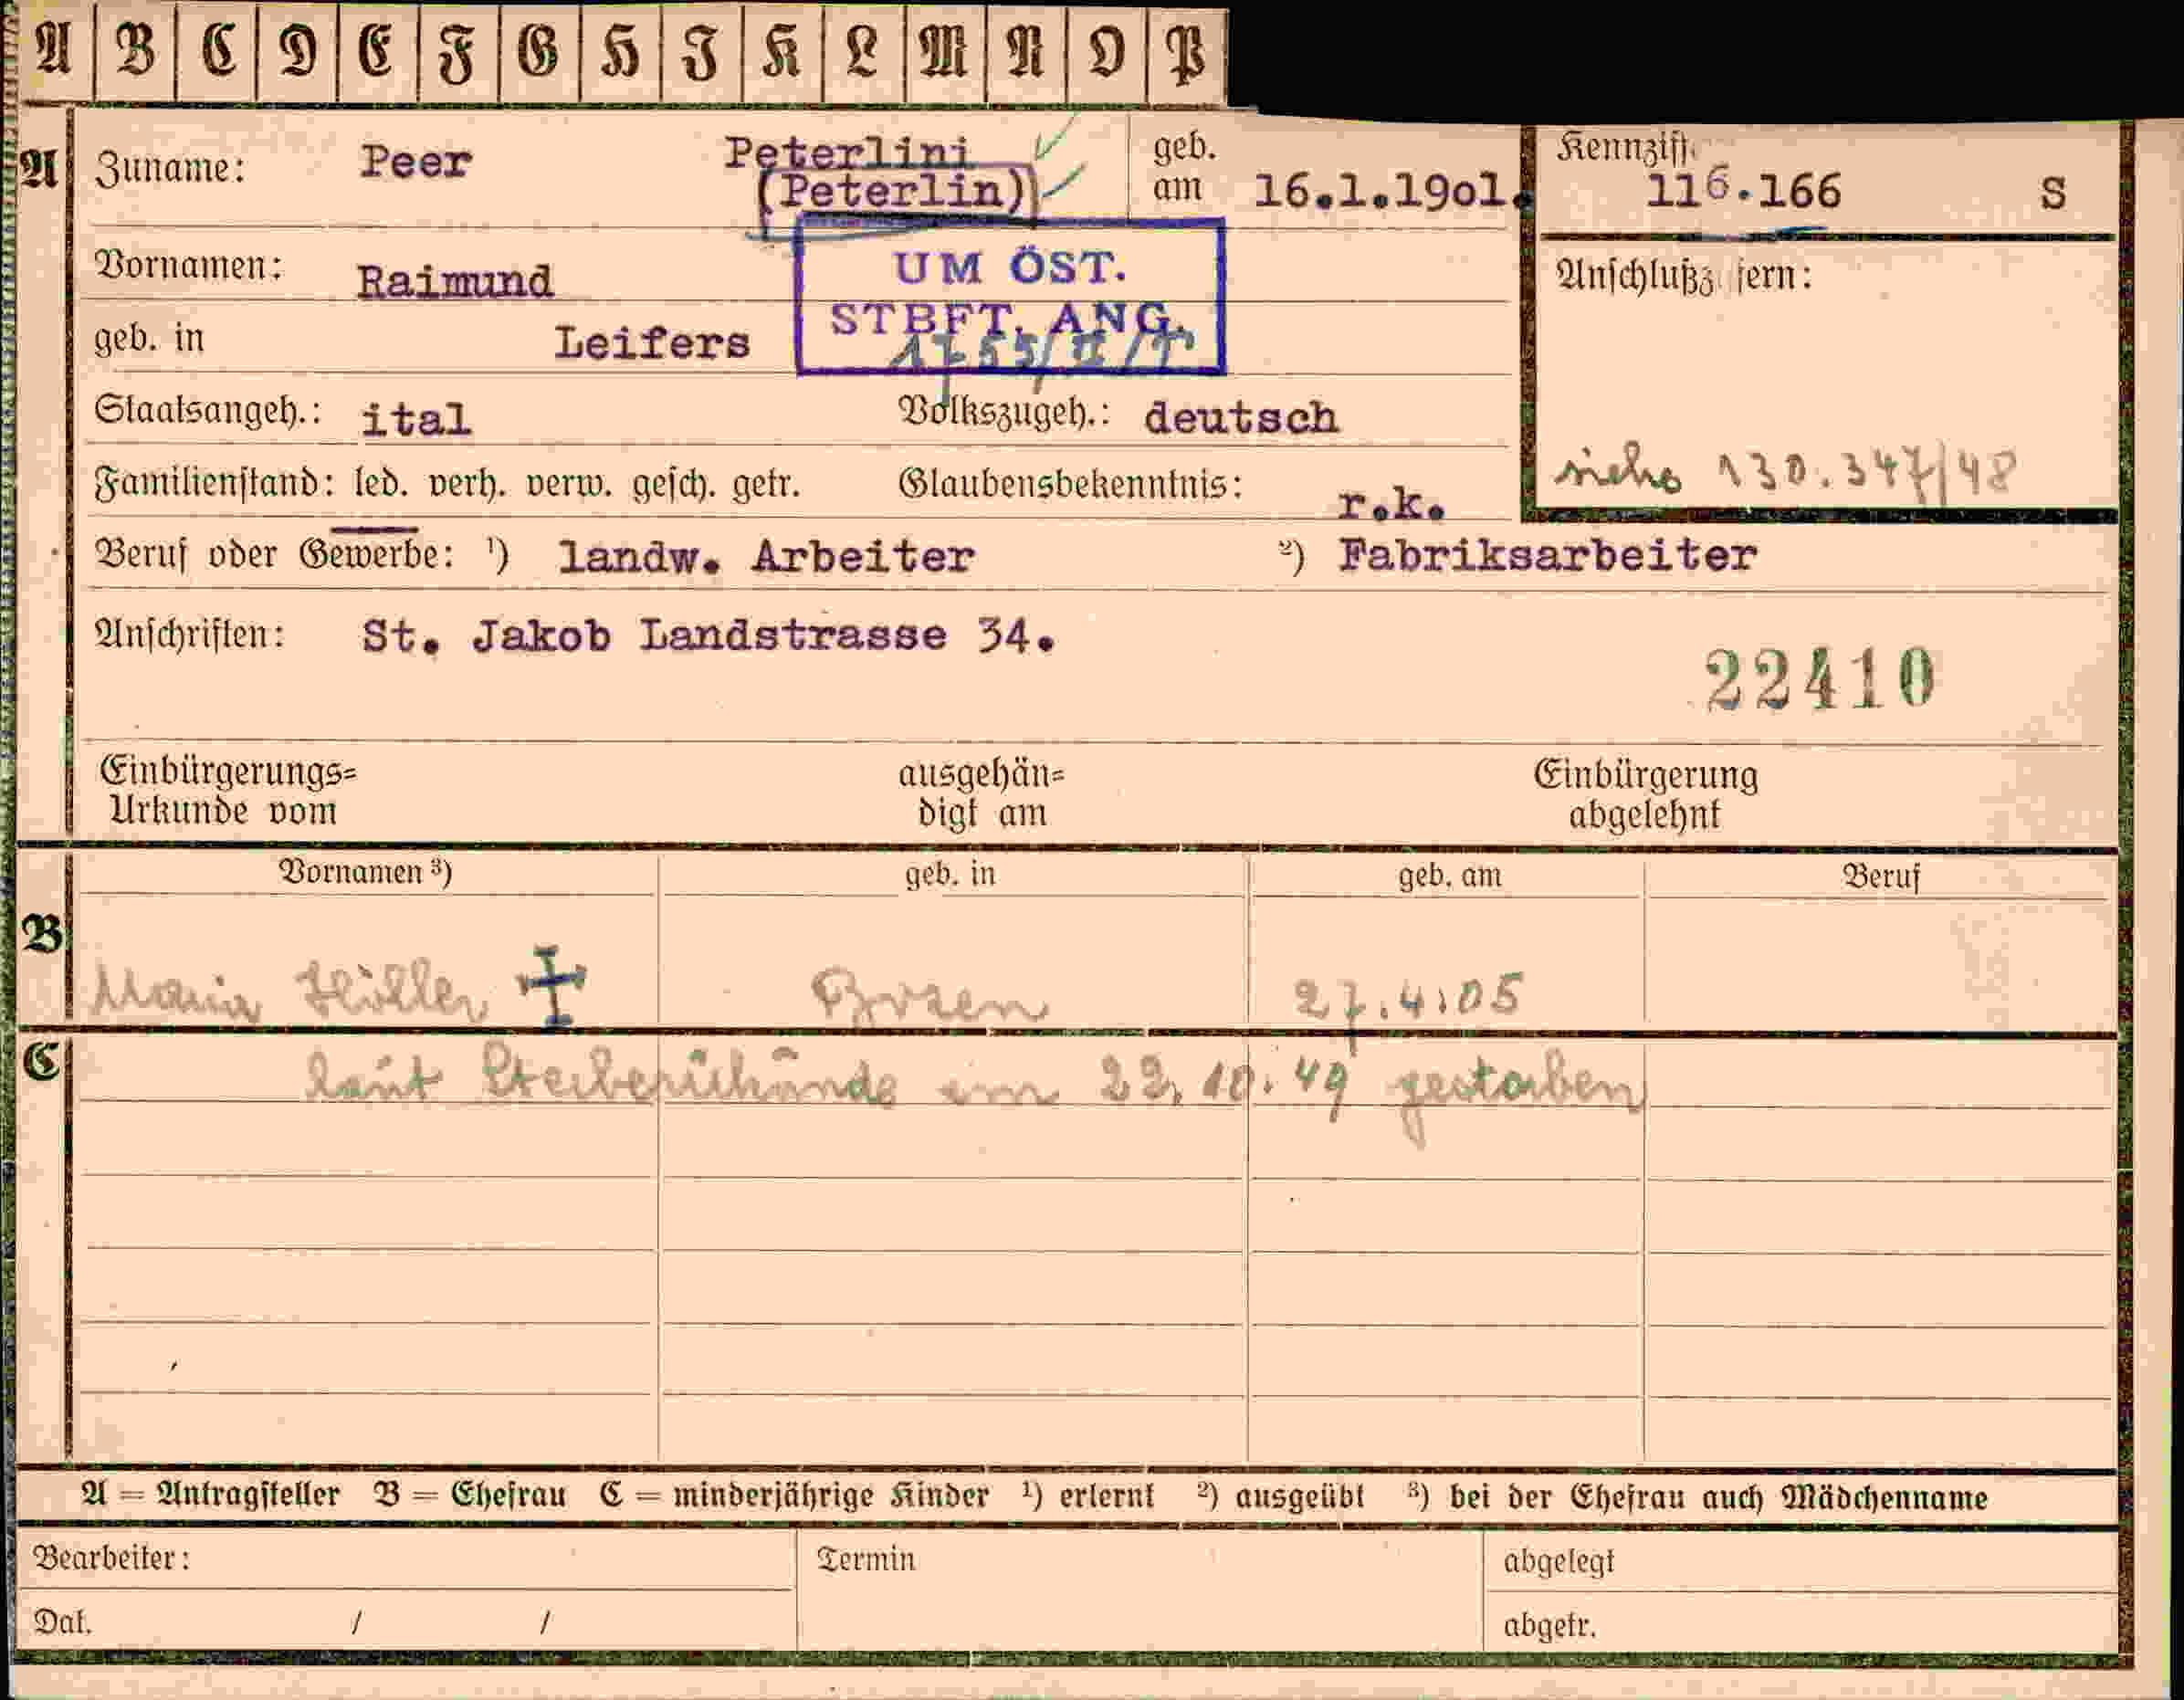 A B C D E F G H I K L M N O P
A Zuname: Peer Peterlini geb. am 16.1.19o1. Kennziff. 116.166 S
(Peterlin)
Vornamen: Raimund UM ÖST. Anschlußz fern:
STBFT. ANG.
geb. in Leifers
Staatsangeh.: ital Volkszugeh.: deutsch
siehe 130.347/48
Familienstand: led. verh. verw. gesch. getr. Glaubensbekenntnis: r.k.
Beruf oder Gewerbe: ¹) landw. Arbeiter ²) Fabriksarbeiter
Anschriften: St. Jakob Landstrasse 34.
22410
Einbürgerungs= ausgehän= Einbürgerung
Urkunde vom digt am abgelehnt
Vornamen ³) geb. in geb. am Beruf
B
Maria Höller Bozen 27.4.05
C
laut Sterbeurkunde am 22.10.49 gestorben
A = Antragsteller B = Ehefrau C = minderjährige Kinder ¹) erlernt ²) ausgeübt ³) bei der Ehefrau auch Mädchenname
Bearbeiter: Termin abgelegt
Dat. / / abgetr.